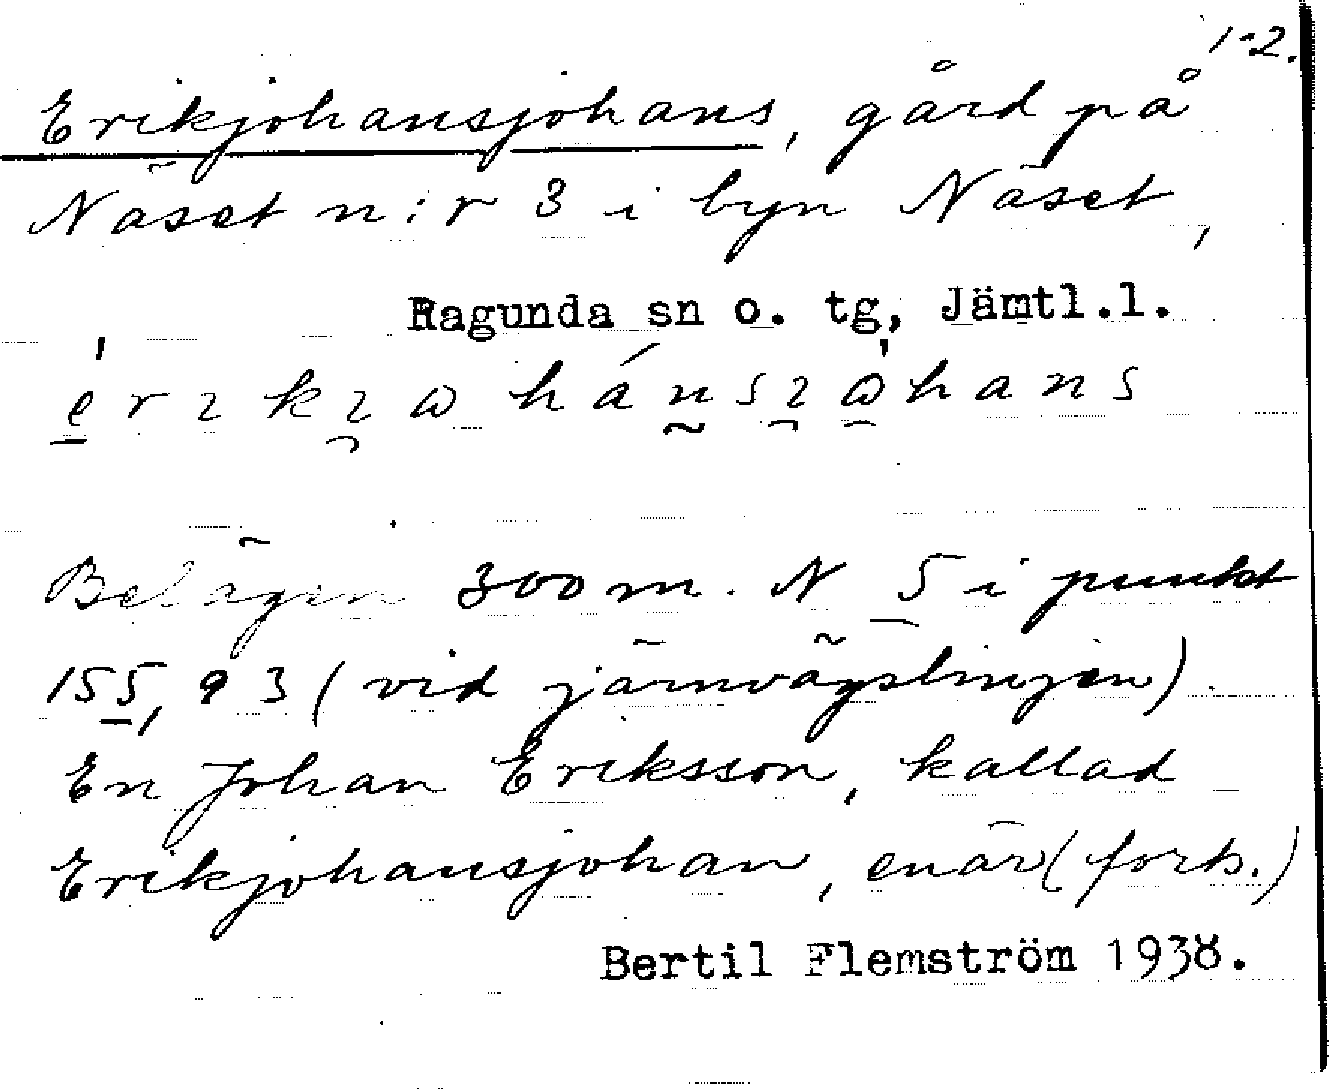 1-2.
Erikjohansjohans, gård på
Näset n:r 3 i byn Näset,
Ragunda sn o. tg, Jämtl.l.
Belägen 300 m. N 5 i punkt
155,93 (vid järnvägslinjen)
En Johan Eriksson, kallad
Erikjohansjohan, enär (forts.)
Bertil Flemström 1938.